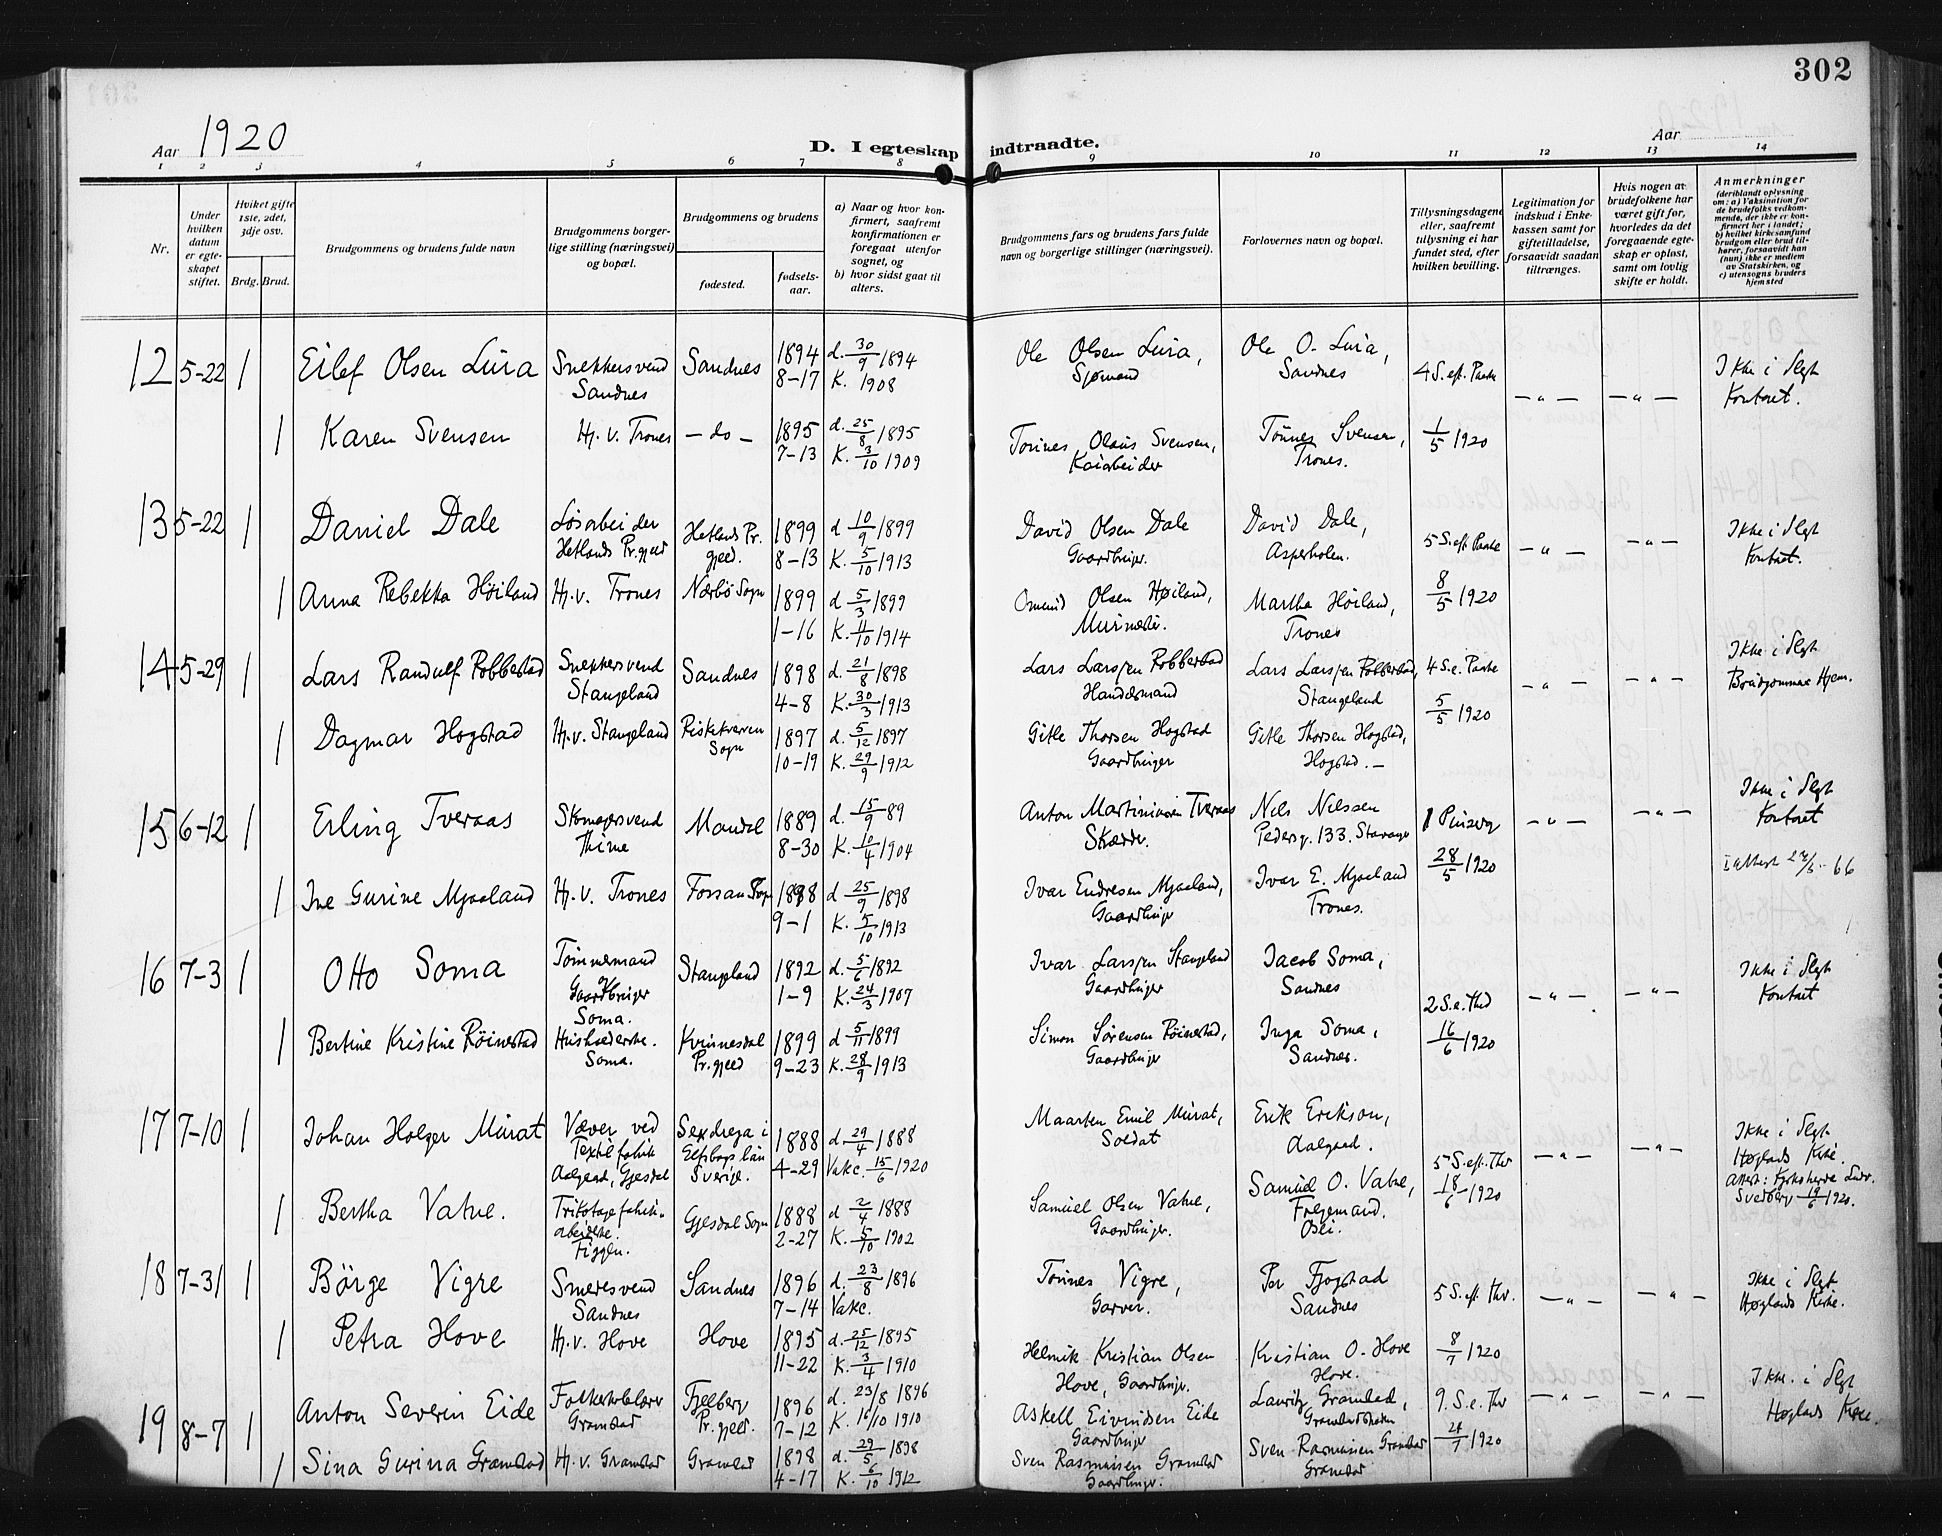 302
Aar 1920
D. I egteskap indtraadte.
Aar
1 2 3 4 5 6 7 8 9 10 11 12 13 14
Nr.
Under hvilken datum er egteskapet stiftet.
Hvilket gifte 1ste, 2det, 3dje osv.
Brdg. Brud.
Brudgommens og brudens fulde navn
Brudgommens borgerlige stilling (næringsvei) og bopæl.
Brudgommens og brudens
fødested.
fødselsaar.
a) Naar og hvor konfirmert, saafremt konfirmationen er foregaat utenfor sognet, og
b) hvor sidst gaat til alters.
Brudgommens fars og brudens fars fulde navn og borgerlige stillinger (næringsvei).
Forlovernes navn og bopæl.
Tillysningsdagene eller, saafremt tillysning ei har fundet sted, efter hvilken bevilling.
Legitimation for indskud i Enkekassen samt for giftetilladelse, forsaavidt saadan tiltrænges.
Hvis nogen av brudefolkene har været gift før, hvorledes da det foregaaende egteskap er opløst, samt om lovlig skifte er holdt.
Anmerkninger (deriblandt oplysning om: a) Vaksination for de brudefolks vedkommende, der ikke er konfirmert her i landet; b) hvilket kirkesamfund brudgom eller brud tilhører, forsaavidt han (hun) ikke er medlem av Statskirken, og c) utensogns bruders hjemsted
12 5-22 1 Eilef Olsen Lura Snekkersvend Sandnes Sandnes 1894 8-17 d. 30/9 1894 K. 1908 Ole Olsen Lura, Sjømand Ole O. Lura, Sandnes 4 S. eft. Paske — " — — " — Ikke i Slegt Kontoret.
1 Karen Svensen Hj. v. Trones — do — 1895 7-13 d. 25/8 1895 K. 3/10 1909 Tønnes Olaus Svensen, Kaiarbeider Tønnes Svensen, Trones. 1/5 1920
13 5-22 1 Daniel Dale Løsarbeider Hetlands Pr.gjeld Hetlands Pr. gjeld. 1899 8-13 d 10/9 1899 K. 5/10 1913 David Olsen Dale Gaardbruger. David Dale, Asperholen. 5 S. eft Paske — " — — " — Ikke i Slegt Kontoret.
1 Anna Rebekka Höiland Hj. v. Trones Nærbö Sogn 1899 1-16 d 5/3 1899 K. 11/10 1914 Omund Olsen Høiland, Murmester. Martha Höiland, Trones 8/5 1920
14 5-29 1 Lars Randulf Robberstad Snekkersvend Stangeland Sandnes 1898 4-8 d. 21/8 1898 K. 30/3 1913 Lars Larsen Robberstad Handelsmand Lars Larsen Robberstad, Stangeland 4 S. e. Paske — " — — " — Ikke i Slegt Brudgommens Hjem.
1 Dagmar Hogstad Hj. v. Stangeland Riskekværen Sogn 1897 10-19 d. 5/12 1897 K. 29/9 1912 Gitle Thorsen Hogstad Gaardbruger Gitle Thorsen Hogstad, Hogstad. — 5/5 1920
15 6-12 1 Erling Tveraas Skomagersvend Thime Mandal 1889 8-30 d. 15/9 89 K. 10/4 1904 Anton Martiniusen Tveraas Skrædder. Nils Nilssen Pedersg. 133. Stavanger 1 Pinsedag — " — — " — Ikke i Slegt Kontoret
1 Ine Gurine Mjaaland Hj. v. Trones Forsan Sogn 1898 9-1 d 25/9 1898 K. 5/10 1913 Ivar Endresen Mjaaland, Gaardbruger Ivar E. Mjaaland Trones. 28/5 1920
16 7-3 1 Otto Soma Tømmermand Gaardbruger Soma. Stangeland 1892 1-9 d. 5/6 1892 K. 24/3 1907 Ivar Larsen Stangeland Gaardbruger Jacob Soma, Sandnes 2 S. e. Thref — " — — " — Ikke i Slegt Kontoret
1 Bertine Kristine Röinestad Husholderske. Soma. Kvinnesdal Pr.gjeld 1899 9-23 d 5/11 1899 K. 28/9 1913 Simon Sörensen Röinestad, Gaardbruger Inga Soma, Sandnes. 16/6 1920
17 7-10 1 Johan Holger Murat Væver ved Textilfabrik Aalgaard, Gjesdal Sexdrega i Elfsborgs län Sverige. 1888 4-29 d. 29/4 1888 Vakc. 15/6 1920 Maarten Emil Murat, Soldat Erik Erikson, Aalgaard. 5 S. eft. Thr — " — — " — Ikke i Slegt Høglands Kirke. Attest: Kyrkoherde Ludv. Svedberg 19/6 1920.
1 Bertha Vatne. Trikotagefabrikarbeiderske. Figgen. Gjesdal Sogn 1888 2-27 d 2/4 1888 K. 5/10 1902 Samuel Olsen Vatne, Gaardbruger. Samuel O. Vatne, Fregemand. Osei. 18/6 1920
18 7-31 1 Börge Vigre Smedesvend Sandnes Sandnes 1896 7-14 d. 23/8 1896 Vakc. Tønnes Vigre, Garver. Per Fjogstad Sandnes 5 S. eft. Thr. — " — — " — Ikke i Slegt Høglands Kirke.
1 Petra Hove Hj. v. Hove Hove 1895 11-22 d. 25/12 1895 K. 3/4 1910 Helmik Kristian Olsen Hove, Gaardbruger. Kristian O. Hove Hove. 8/7 1920
19 8-7 1 Anton Severin Eide Folkeskolelærer Gramstad Fjelberg Pr. gjeld. 1896 7-12 d. 23/8 1896 K. 16/10 1910 Askell Eivindsen Eide Gaardbruger Lauritz Gramstad, 9. S. e. Thr — " — — " — Ikke i Slegt Høglands Kirke.
1 Sina Gurina Gramstad Hj. v. Gramstad Gramstad 1898 4-17 d. 29/5 1898 K. 6/10 1912 Sven Rasmussen Gramstad Gaardbruger. Sven Rasmussen Gramstad Gramstad 24/7 1920